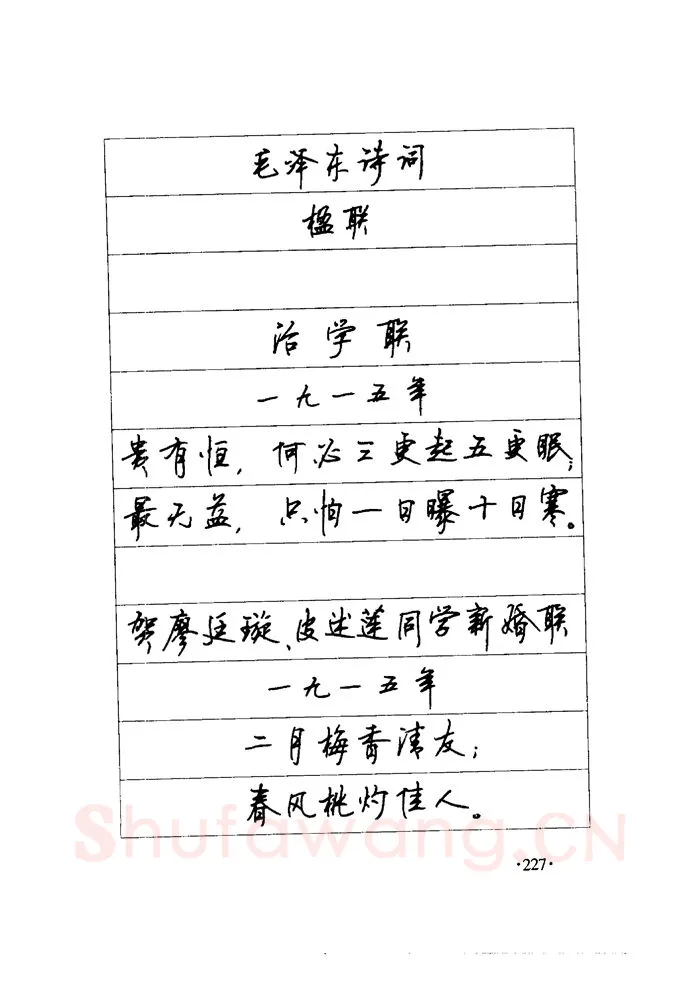 毛泽东诗词
楹联
治学联
一九一五年
贵有恒，何必三更起五更眠；
最无益，只怕一日曝十日寒。
贺廖廷璇、皮述莲同学新婚联
一九一五年
二月梅香清友；
春风桃灼佳人。
Shufawang.CN
·227·